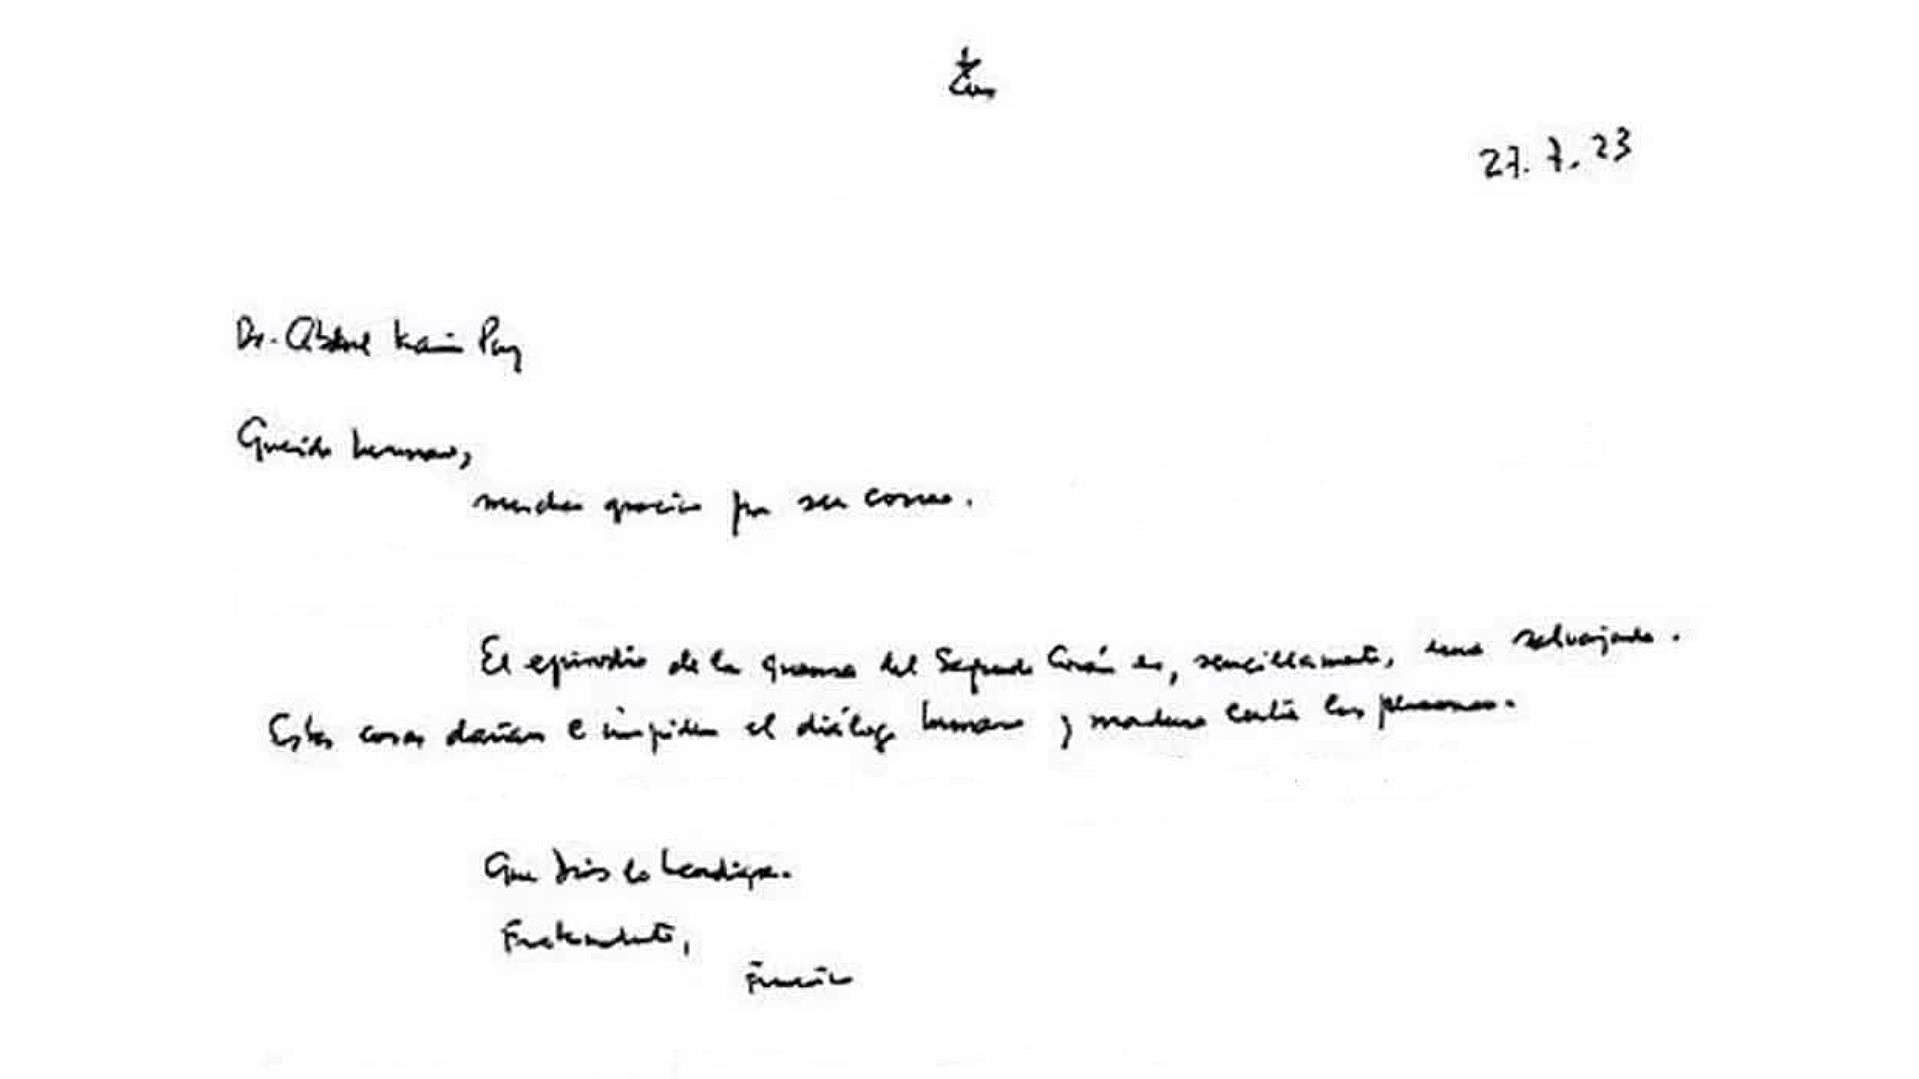 27.7.23
Dr. Abdul Karim Paz
Querido hermano,
muchas gracias por su correo.
El episodio de la quema del Sagrado Corán es, sencillamente, una salvajada.
Estas cosas dañan e impiden el diálogo humano y maduro entre las personas.
Que Dios lo bendiga.
Fraternalmente,
Francisco